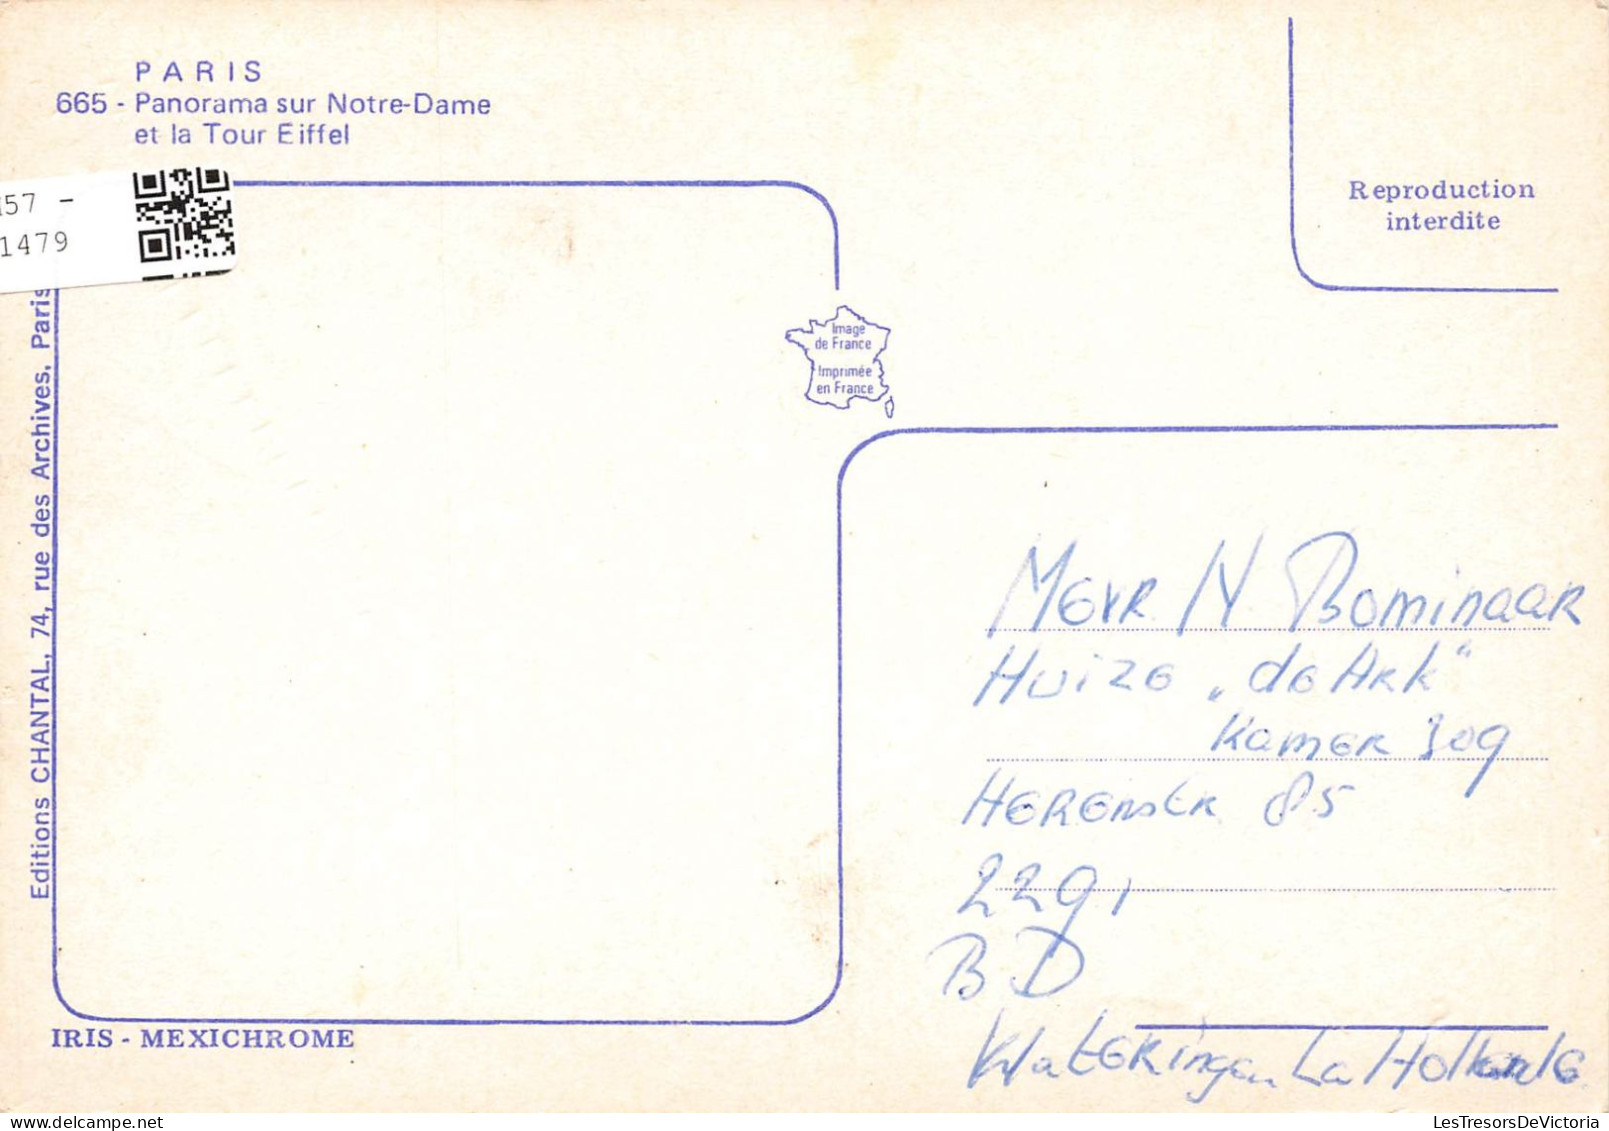 PARIS
665 - Panorama sur Notre-Dame
et la Tour Eiffel
57 -
1479
Reproduction
interdite
Image
de France
Imprimée
en France
Editions CHANTAL, 74, rue des Archives, Paris
Mevr N Bominaar
Huize „de Ark"
Kamer 309
Herenstr 85
2291
BD
Wateringen La Hollande
IRIS - MEXICHROME
LesTresorsDeVictoria